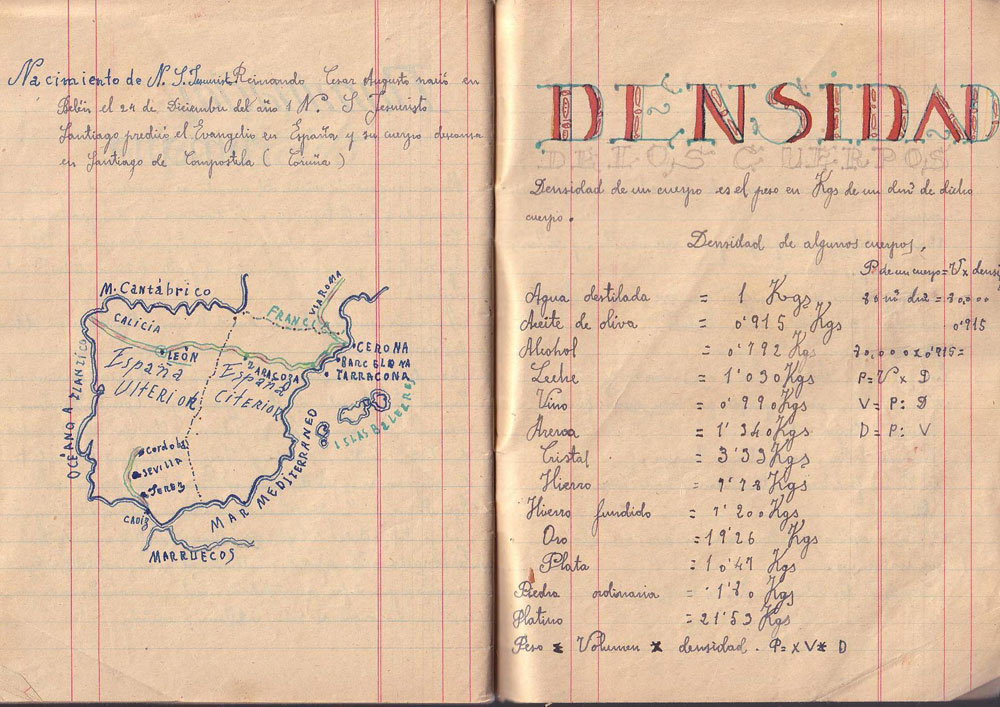 Nacimiento de N. S. Jesucrist. Reinando Cesar Augusto nació en
Belén el 24 de Diciembre del año 1 N. S Jesucristo
Santiago predicó el Evangelio en España y su cuerpo descansa
en Santiago de Compostila ( Coruña )
M. Cantábrico
VIA ROMA
FRANCIA
GALICIA
LEÓN
CERONA
BARCELONA
TARRACONA
ZARAGOZA
España
ULTERIOR
España
CITERIOR
OCÉANO A
ISLAS BALEARES
Cordoba
SEVILLA
Jerez
CADIZ
MAR MEDITERRANEO
MARRUECOS
DENSIDAD
DE LOS CUERPOS
Densidad de un cuerpo es el peso en Kgs de un dm³ de dicho
cuerpo.
Densidad de algunos cuerpos,
P. de un cuerpo = V x densi
Agua destilada = 1 Kgs
Aceite de oliva = 0'915 Kgs
0'915
Alcohol = 0'792 Kgs
Leche = 1'030 Kgs P= V x D
Vino = 0'990 Kgs V= P: D
Arena = 1'340 Kgs D= P: V
Cristal = 3'33 Kgs
Hierro = 7'78 Kgs
Hierro fundido = 7'200 Kgs
Oro = 19'26 Kgs
Plata = 10'47 Kgs
Piedra ordinaria = 1'80 Kgs
Platino = 21'53 Kgs
Peso = Volumen x densidad. P= x V* D